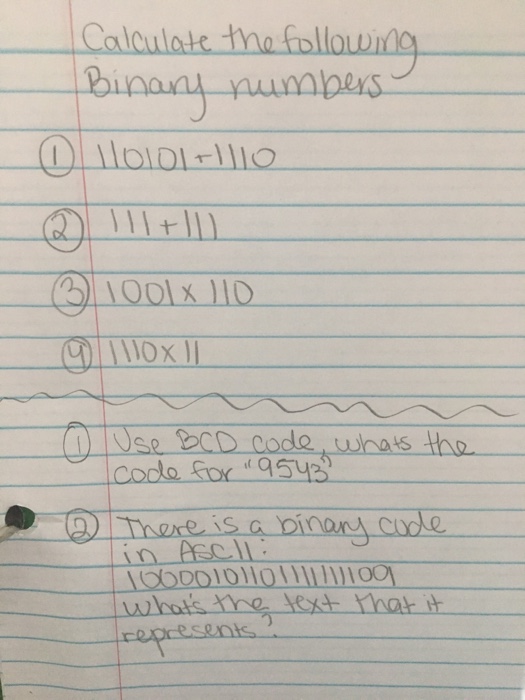 Calculate the following
Binary numbers
① 110101+1110
② 111+111
③ 1001x110
④ 1110x11
① Use BCD code, whats the
code for "9543"
② There is a binary code
in ASCII:
what's the text that it
represents?